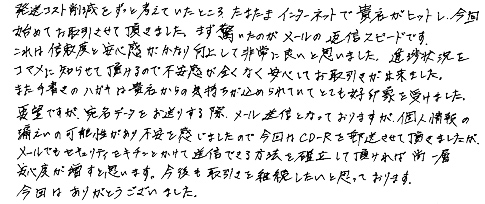 発送コスト削減をずっと考えていたところ、たまたまインターネットで貴社がヒットし、今回
始めてお取引させて頂きました。まず驚いたのがメールの返信スピードです。
これは信頼度と安心感がかなり向上して非常に良いと思いました。進捗状況を
コマメに知らせて頂けるので不安感が全くなく安心してお取引きが出来ました。
また手書きのハガキは貴社からの気持ちが込められていてとても好印象を受けました。
要望ですが、宛名データをお送りする際、メール送信となっておりますが、個人情報の
漏えいの可能性があり不安を感じましたので今回はCD-Rを郵送させて頂きましたが、
メールでもセキュリティをキチッとかけて送信できる方法を確立して頂ければ尚一層
安心度が増すと思います。今後も取引きを継続したいと思っております。
今回はありがとうございました。